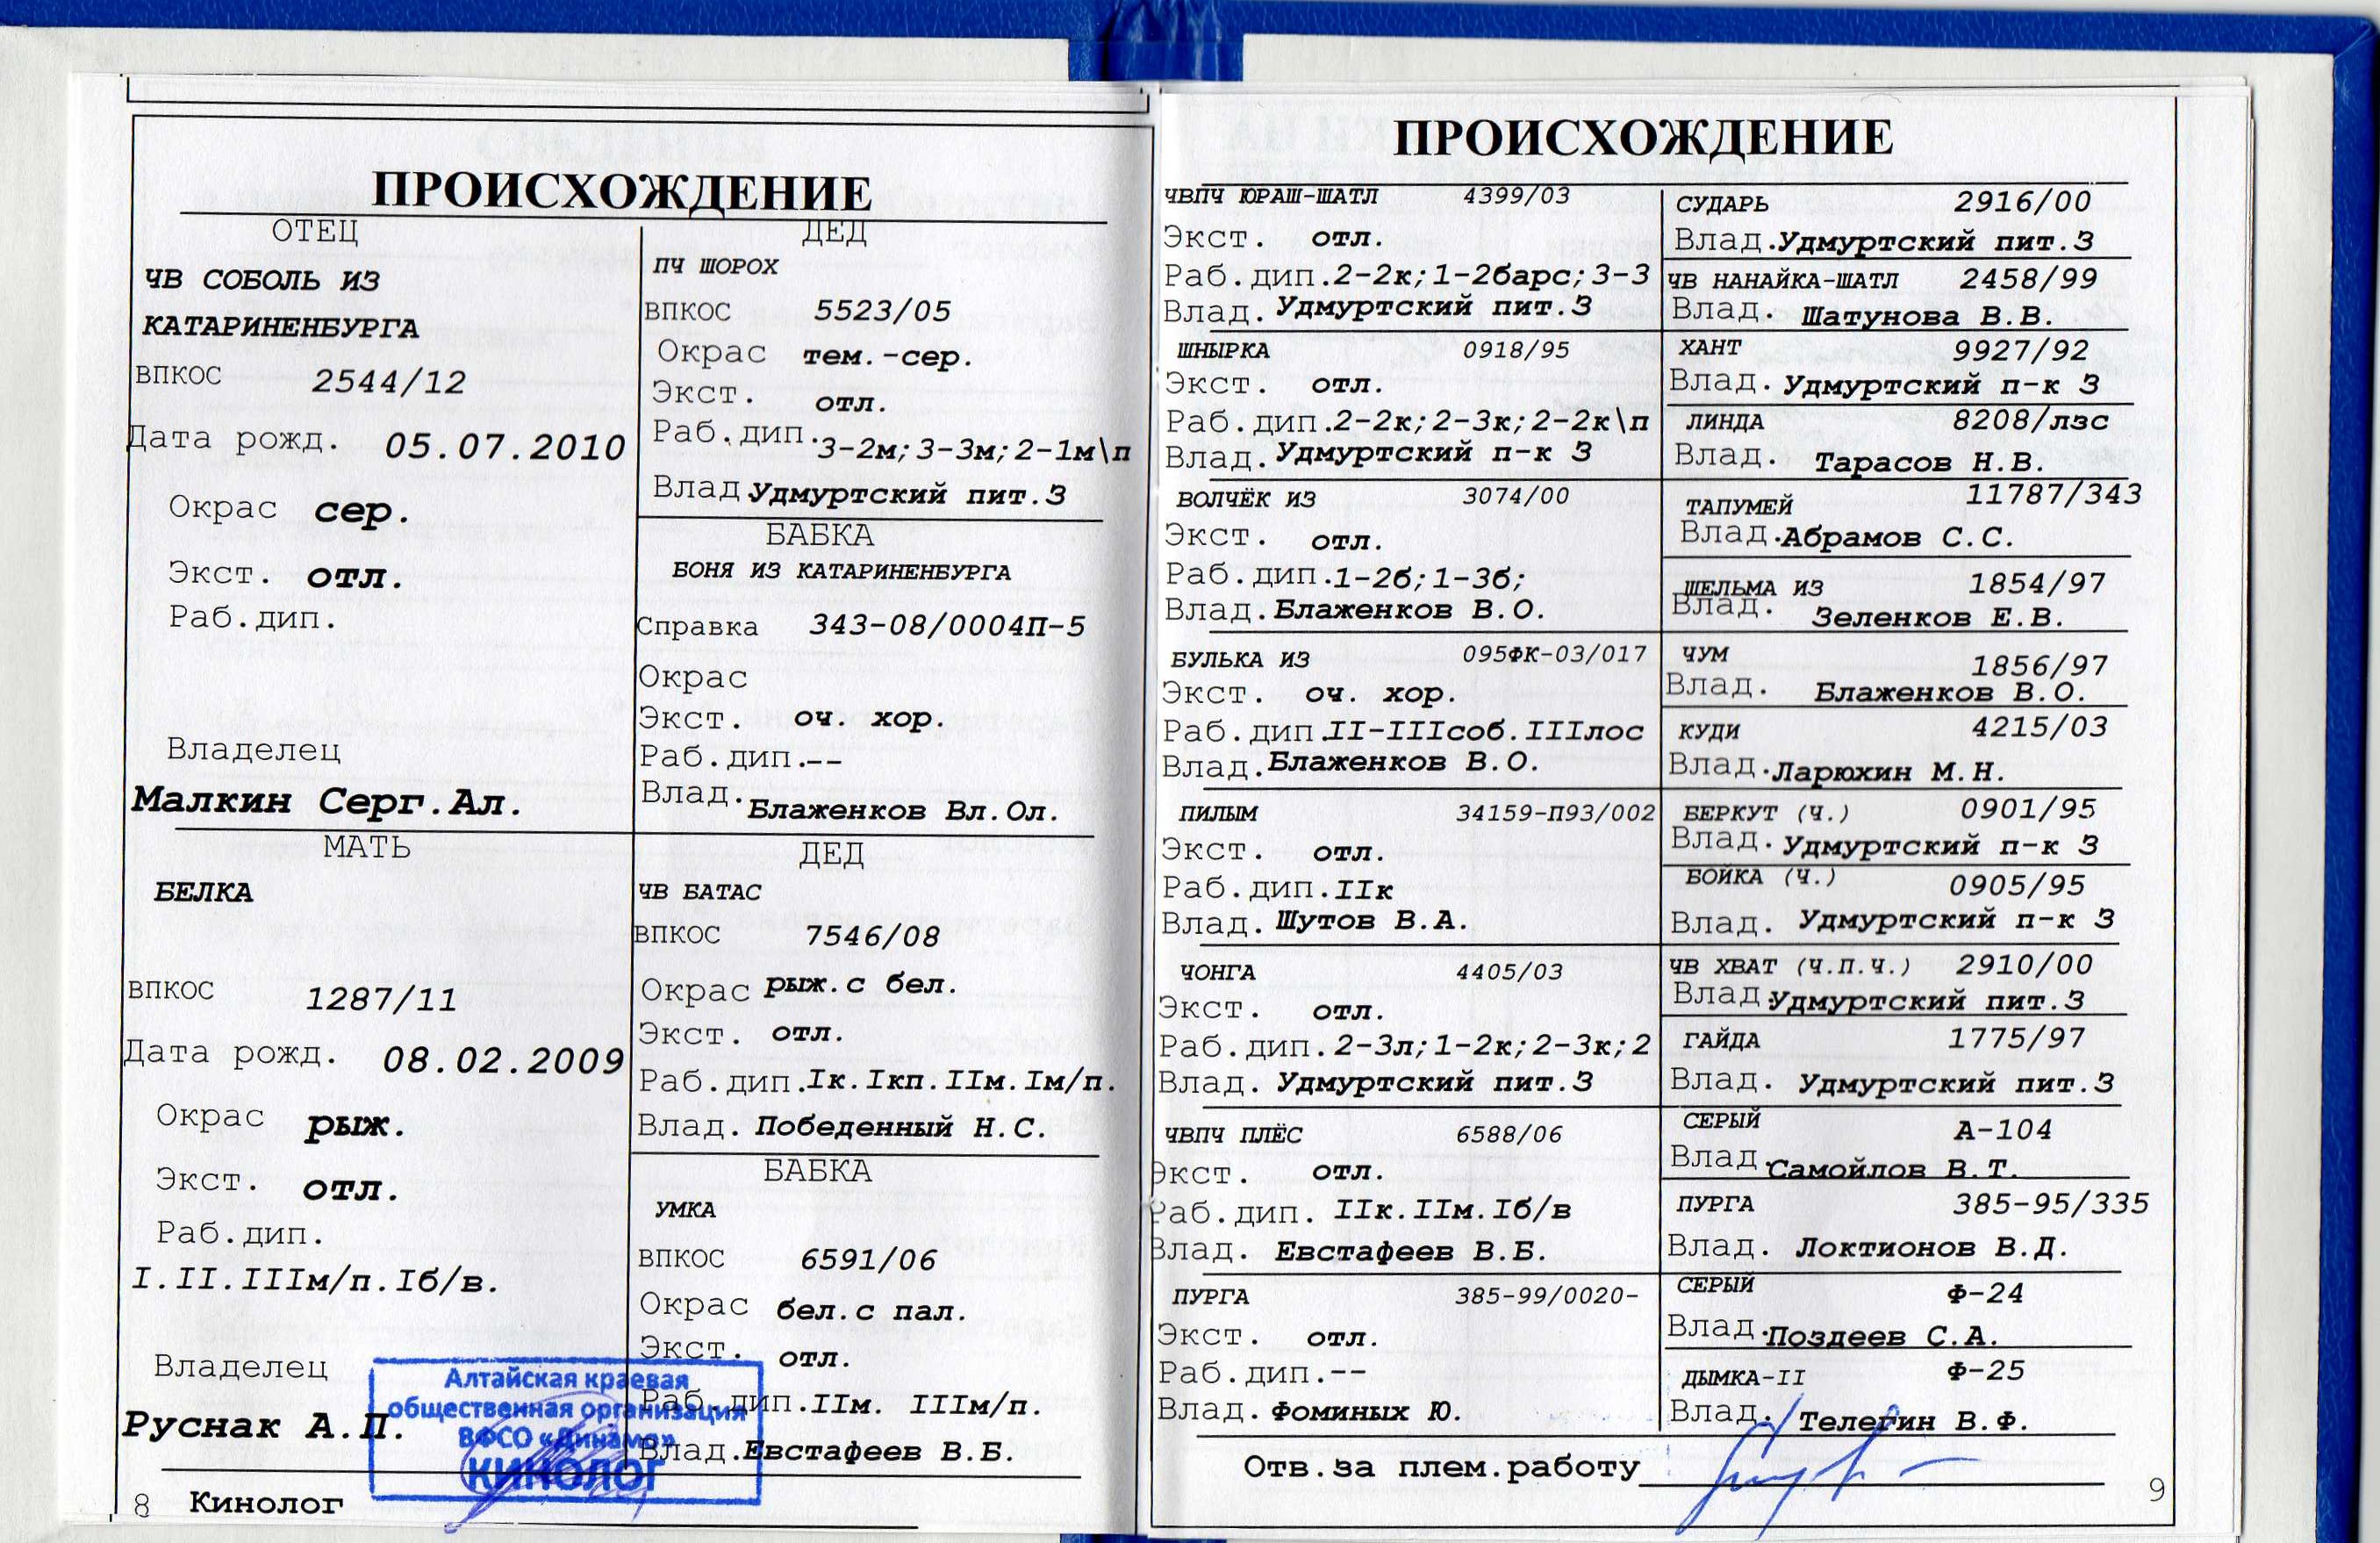 ПРОИСХОЖДЕНИЕ
ОТЕЦ
ЧВ СОБОЛЬ ИЗ
КАТАРИНЕНБУРГА
ВПКОС 2544/12
Дата рожд. 05.07.2010
Окрас сер.
Экст. отл.
Раб.дип.
Владелец
Малкин Серг.Ал.
ДЕД
ПЧ ШОРОХ
ВПКОС 5523/05
Окрас тем.-сер.
Экст. отл.
Раб.дип.3-2м;3-3м;2-1м\п
Влад Удмуртский пит.З
БАБКА
БОНЯ ИЗ КАТАРИНЕНБУРГА
Справка 343-08/0004П-5
Окрас
Экст. оч. хор.
Раб.дип.--
Влад. Блаженков Вл.Ол.
МАТЬ
БЕЛКА
ВПКОС 1287/11
Дата рожд. 08.02.2009
Окрас рыж.
Экст. отл.
Раб.дип.
I.II.IIIм/п.Iб/в.
Владелец
Руснак А.П.
ДЕД
ЧВ БАТАС
ВПКОС 7546/08
Окрас рыж.с бел.
Экст. отл.
Раб.дип.Iк.Iкп.IIм.Iм/п.
Влад. Победенный Н.С.
БАБКА
УМКА
ВПКОС 6591/06
Окрас бел.с пал.
Экст. отл.
Раб.дип.IIм. IIIм/п.
Влад.Евстафеев В.Б.
Алтайская краевая
общественная организация
ВФСО «Динамо»
КИНОЛОГ
8 Кинолог
ПРОИСХОЖДЕНИЕ
ЧВПЧ ЮРАШ-ШАТЛ 4399/03
Экст. отл.
Раб.дип.2-2к;1-2барс;3-3
Влад. Удмуртский пит.З
ШНЫРКА 0918/95
Экст. отл.
Раб.дип.2-2к;2-3к;2-2к\п
Влад. Удмуртский п-к З
ВОЛЧЁК ИЗ 3074/00
Экст. отл.
Раб.дип.1-2б;1-3б;
Влад. Блаженков В.О.
БУЛЬКА ИЗ 095ФК-03/017
Экст. оч. хор.
Раб.дип.II-IIIсоб.IIIлос
Влад. Блаженков В.О.
ПИЛЫМ 34159-П93/002
Экст. отл.
Раб.дип.IIк
Влад. Шутов В.А.
ЧОНГА 4405/03
Экст. отл.
Раб.дип.2-3л;1-2к;2-3к;2
Влад. Удмуртский пит.З
ЧВПЧ ПЛЁС 6588/06
Экст. отл.
Раб.дип. IIк.IIм.Iб/в
Влад. Евстафеев В.Б.
ПУРГА 385-99/0020-
Экст. отл.
Раб.дип.--
Влад. Фоминых Ю.
СУДАРЬ 2916/00
Влад.Удмуртский пит.З
ЧВ НАНАЙКА-ШАТЛ 2458/99
Влад. Шатунова В.В.
ХАНТ 9927/92
Влад. Удмуртский п-к З
ЛИНДА 8208/лзс
Влад. Тарасов Н.В.
ТАПУМЕЙ 11787/343
Влад.Абрамов С.С.
ШЕЛЬМА ИЗ 1854/97
Влад. Зеленков Е.В.
ЧУМ 1856/97
Влад. Блаженков В.О.
КУДИ 4215/03
Влад.Ларюхин М.Н.
БЕРКУТ (Ч.) 0901/95
Влад. Удмуртский п-к З
БОЙКА (Ч.) 0905/95
Влад. Удмуртский п-к З
ЧВ ХВАТ (Ч.П.Ч.) 2910/00
Влад Удмуртский пит.З
ГАЙДА 1775/97
Влад. Удмуртский пит.З
СЕРЫЙ А-104
Влад.Самойлов В.Т.
ПУРГА 385-95/335
Влад. Локтионов В.Д.
СЕРЫЙ Ф-24
Влад.Поздеев С.А.
ДЫМКА-II Ф-25
Влад. Телегин В.Ф.
Отв.за плем.работу
9